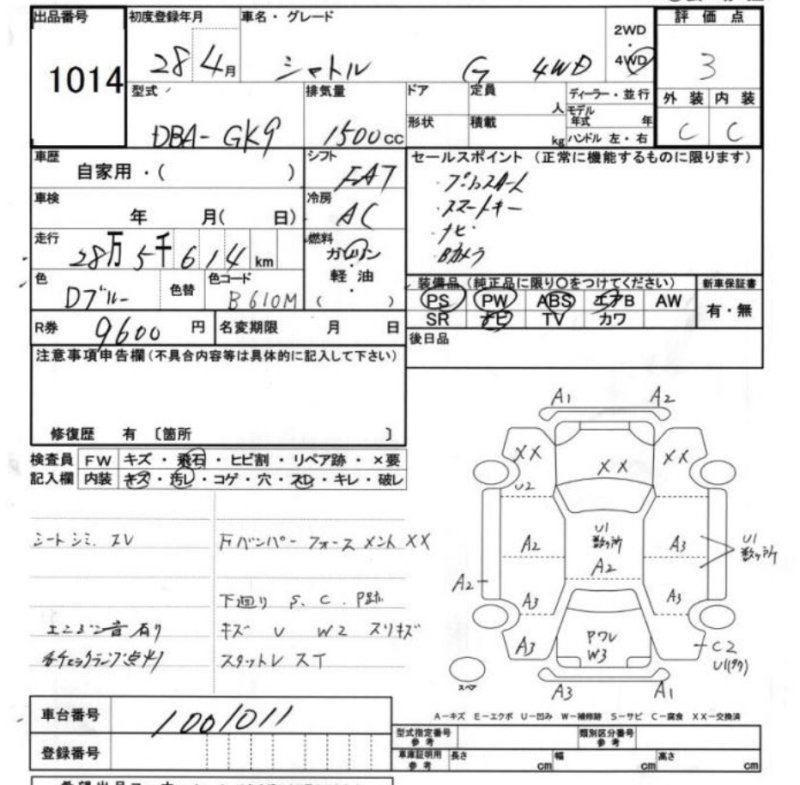 出品番号 初度登録年月 車名・グレード 評価点
1014 28 4月 シャトル G 4WD 2WD・4WD 3
型式 排気量 ドア 定員 ディーラー・並行 外装 内装
DBA-GK9 1500cc 形状 積載 人 モデル年式 年 C C
kg ハンドル 左・右
車歴 自家用・( ) シフト FAT セールスポイント (正常に機能するものに限ります)
・プッシュスタート
・スマートキー
・ナビ
・Bカメラ
車検 年 月( 日) 冷房 AC
走行 28万5千614km 燃料 ガソリン
軽油
( )
色 Dブルー 色替 色コード B610M
装備品 (純正品に限り○をつけてください) 新車保証書
PS PW ABS エアB AW 有・無
SR ナビ TV カワ
R券 9600円 名変期限 月 日
後日品
注意事項申告欄(不具合内容等は具体的に記入して下さい)
修復歴 有 〔箇所 〕
検査員 FW キズ・飛石・ヒビ割・リペア跡・×要
記入欄 内装 キズ・汚レ・コゲ・穴・スレ・キレ・破レ
シートシミ、スレ
Fバンパー フォースメント XX
下廻り S、C、P跡
エンジン音有り
キズ U W2 スリキズ
各チェックランプ点灯
スタットレスT
A1 A2
XX XX XX
U2
A2 U1 数ヶ所 A3 U1 数ヶ所
A2 A2
A3 A3
A3 Pワレ W3 C2
スペア
A3 A1
A-キズ E-エクボ U-凹み W-補修跡 S-サビ C-腐食 XX-交換済
車台番号 1001011
登録番号
型式指定番号 参考 類別区分番号 参考
車庫証明用 参考 長さ cm 幅 cm 高さ cm